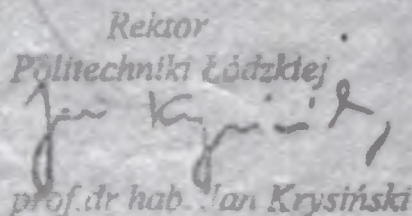 Rektor
Politechniki Łódzkiej
prof.dr hab. Jan Krysiński